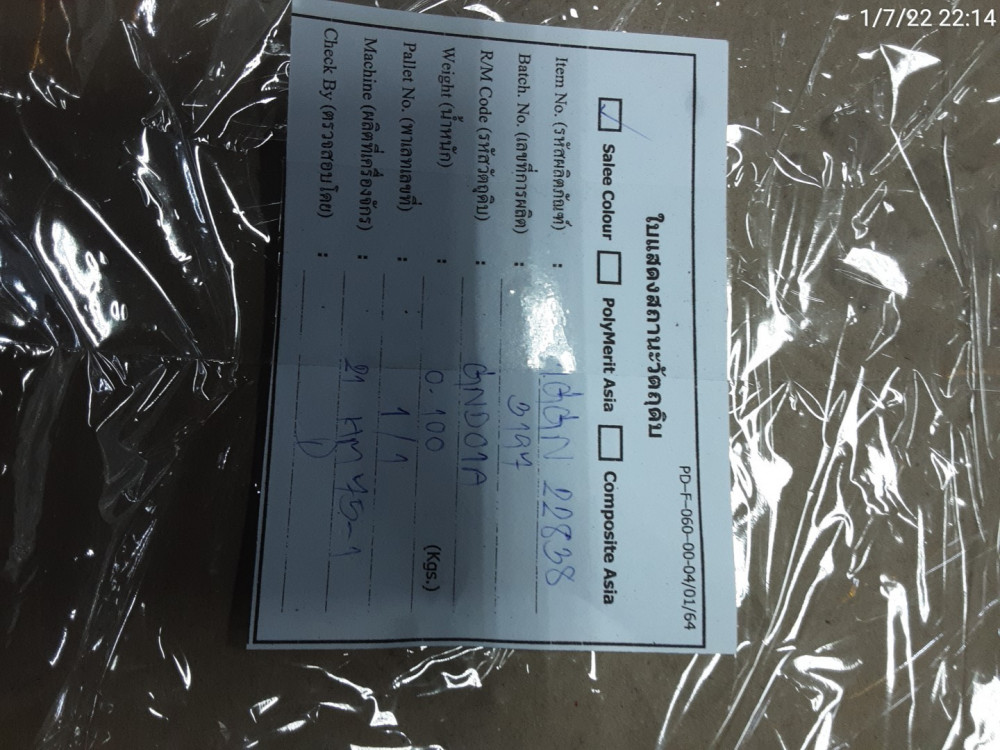 1/7/22 22:14
PD-F-060-00-04/01/64
ใบแสดงสถานะวัตถุดิบ
Salee Colour PolyMerit Asia Composite Asia
Item No. (รหัสผลิตภัณฑ์) : 22838
Batch. No. (เลขที่การผลิต) :
R/M Code (รหัสวัตถุดิบ) :
Weight (น้ำหนัก) : 0.100 (Kgs.)
Pallet No. (พาเลทเลขที่) : 1/1
Machine (ผลิตที่เครื่องจักร) : 21
Check By (ตรวจสอบโดย) :